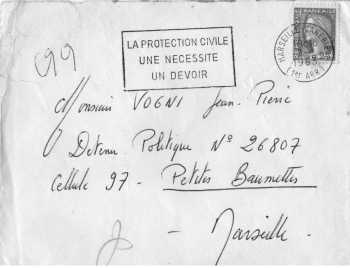 C99
LA PROTECTION CIVILE
UNE NECESSITE
UN DEVOIR
MARSEILLE
Monsieur VOGNI Jean-Pierre
Detenu Politique N° 26807
Cellule 97 - Petites Baumettes
Marseille -